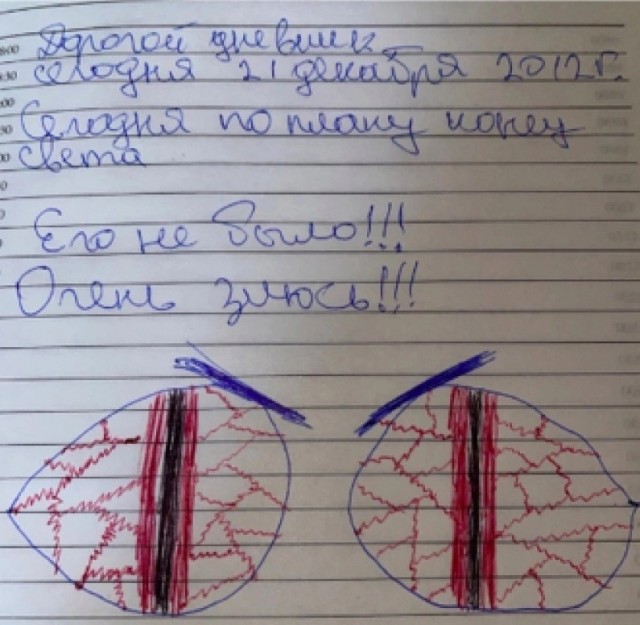 Дорогой дневник
сегодня 21 декабря 2012г.
Сегодня по плану конец
света
Его не было!!!
Очень злюсь!!!